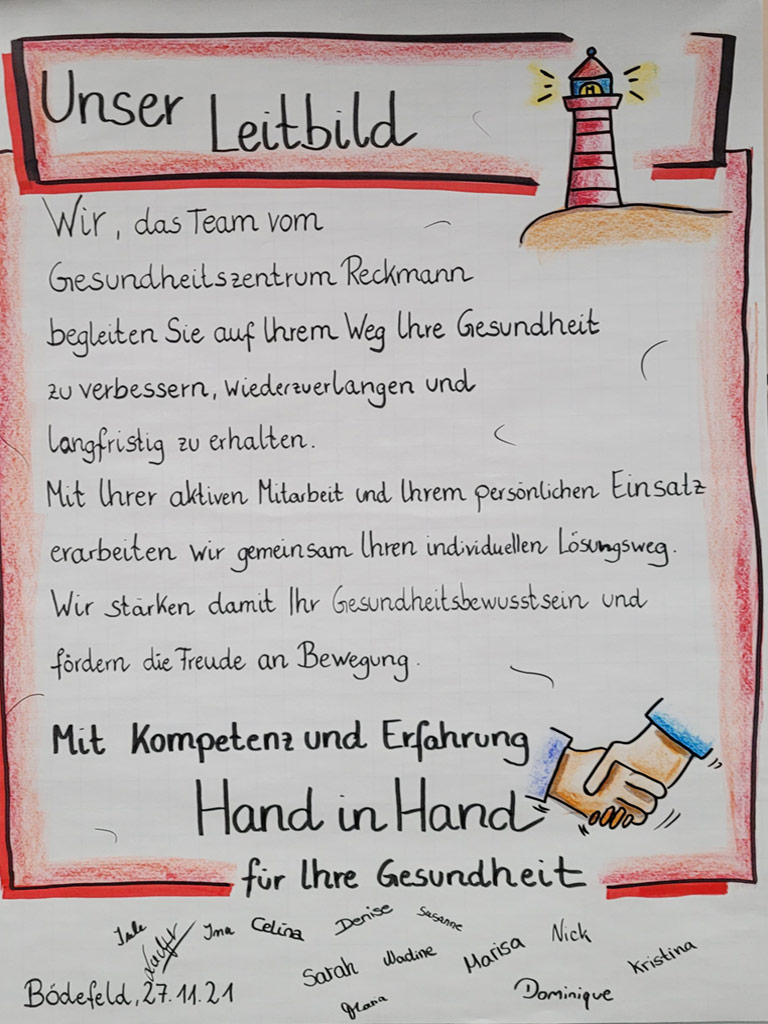 Unser Leitbild
Wir, das Team vom
Gesundheitszentrum Reckmann
begleiten Sie auf Ihrem Weg Ihre Gesundheit
zu verbessern, wiederzuerlangen und
langfristig zu erhalten.
Mit Ihrer aktiven Mitarbeit und Ihrem persönlichen Einsatz
erarbeiten wir gemeinsam Ihren individuellen Lösungsweg.
Wir stärken damit Ihr Gesundheitsbewusstsein und
fördern die Freude an Bewegung.
Mit Kompetenz und Erfahrung
Hand in Hand
für Ihre Gesundheit
Ina Celina Denise Susanne
Sarah Nadine Marisa Nick
Kristina
Maria Dominique
Bödefeld, 27.11.21